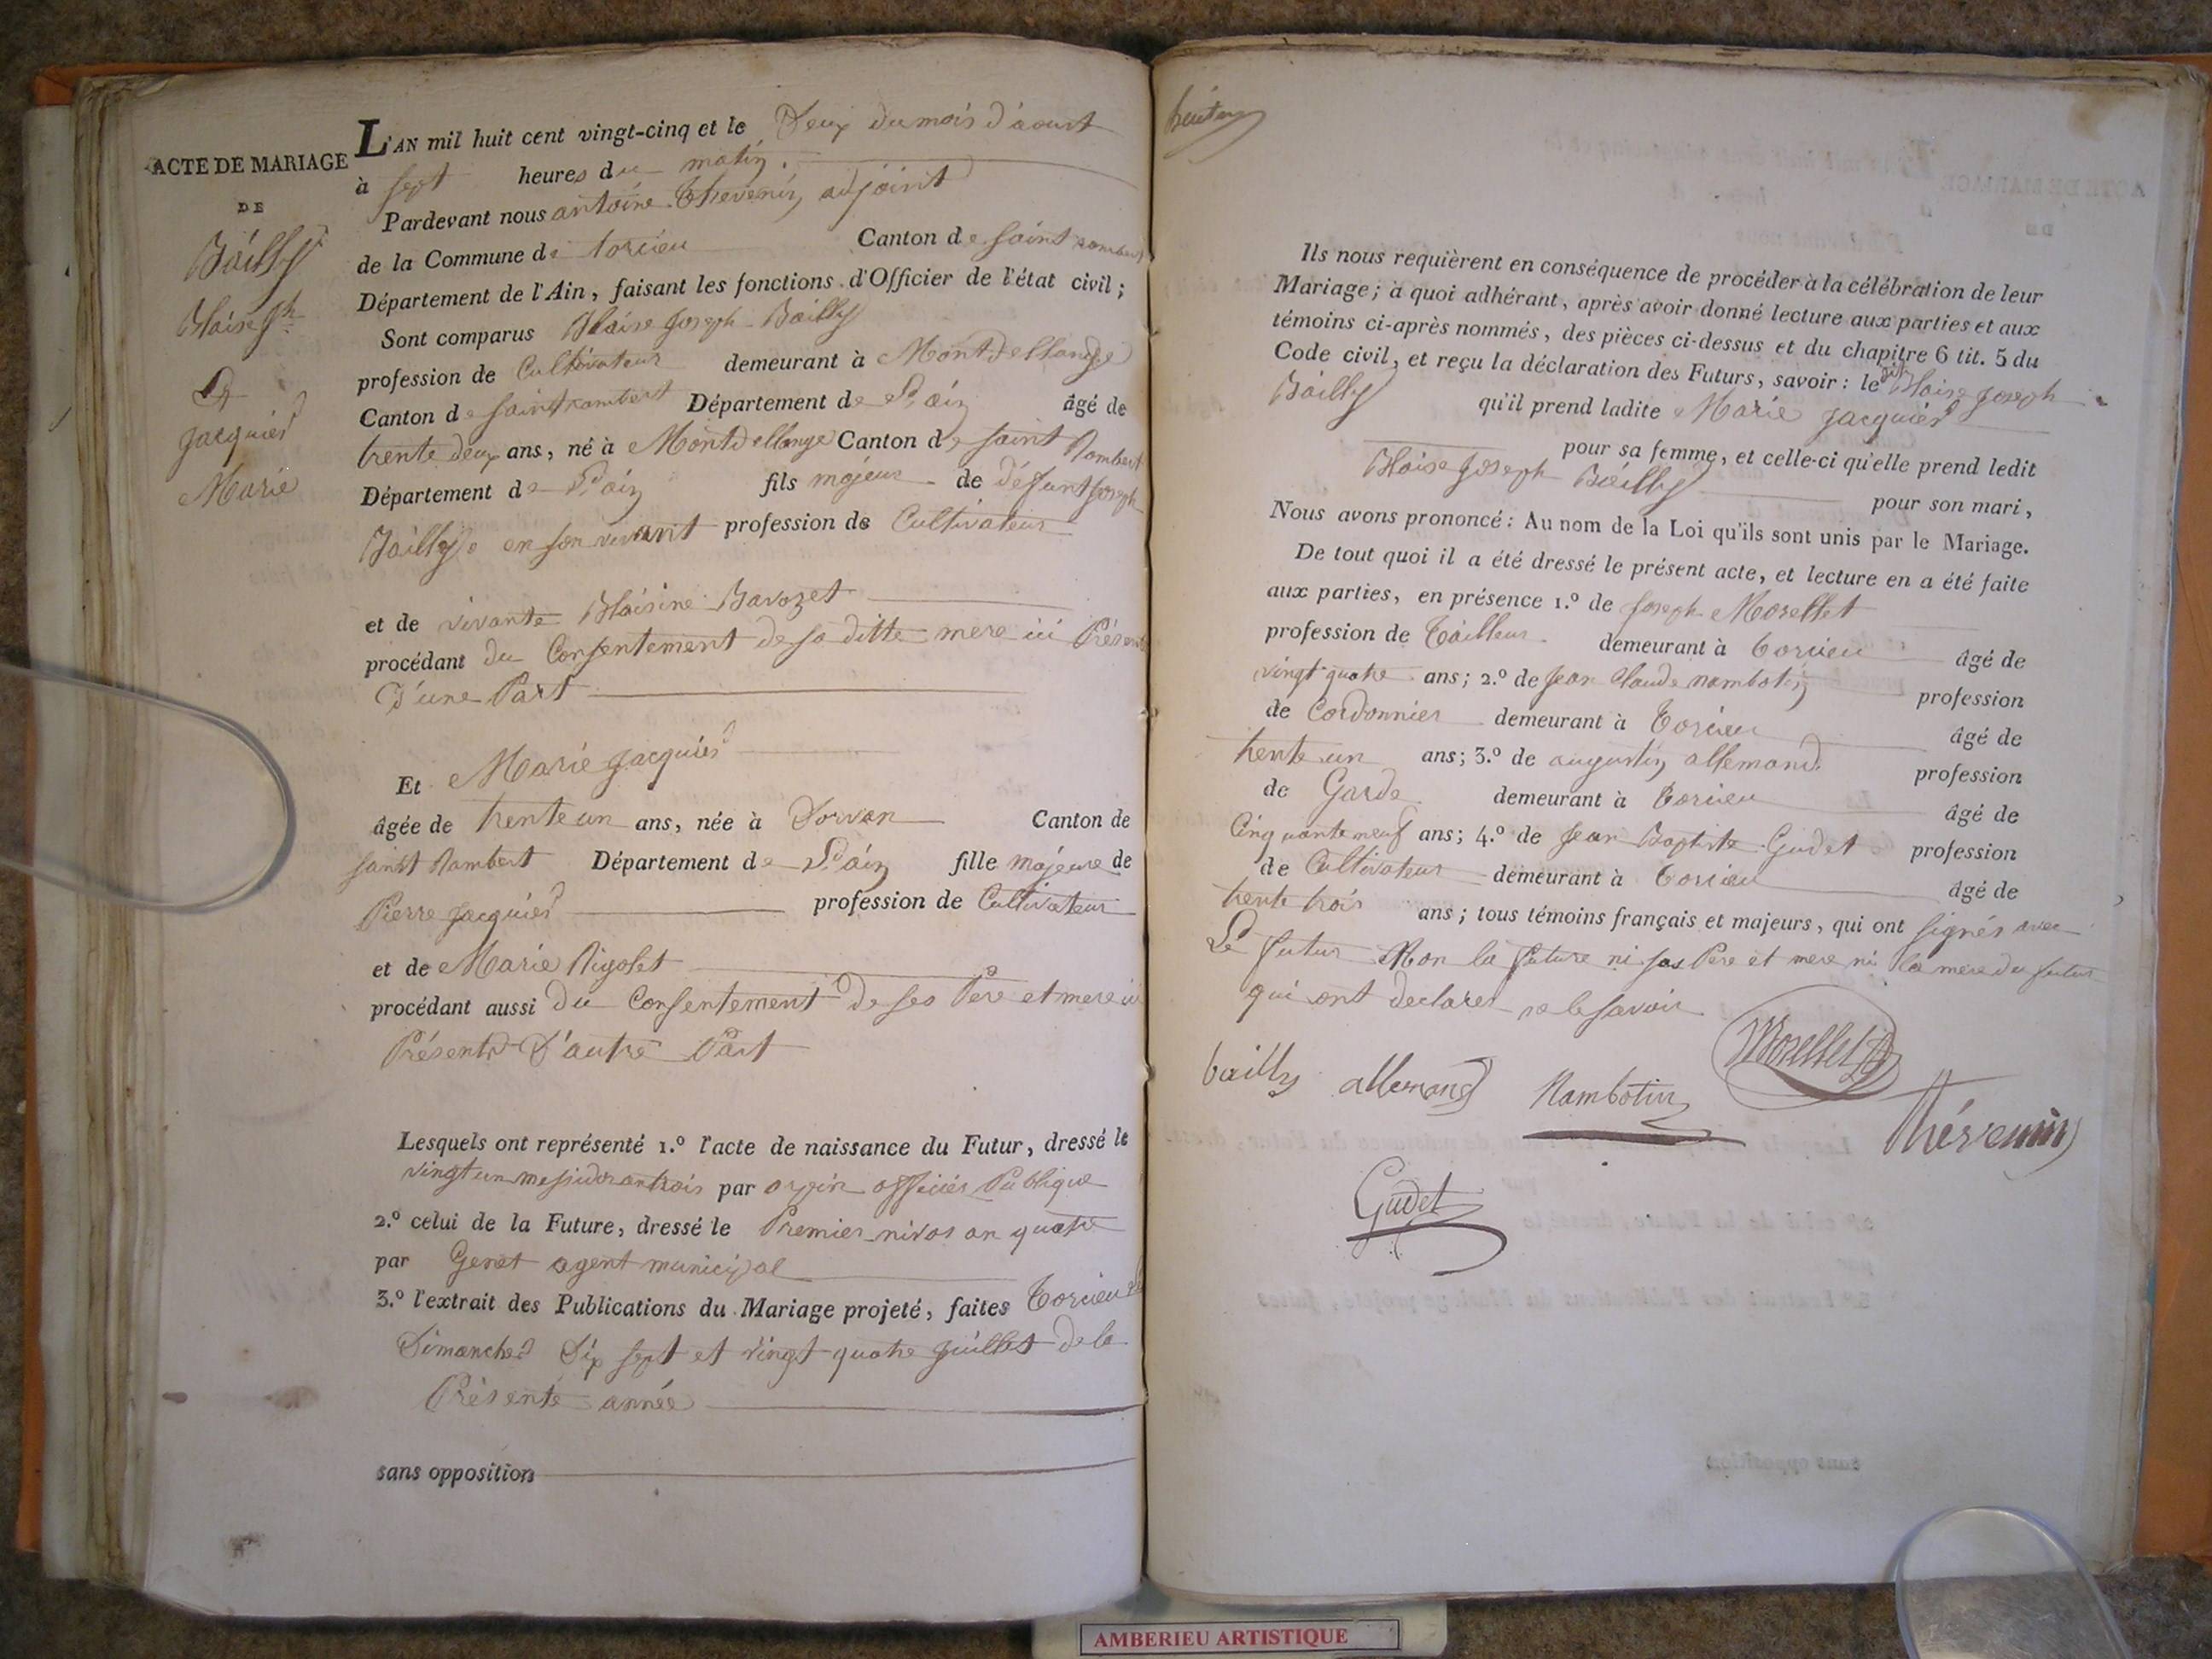 ACTE DE MARIAGE
DE
Bailly
Blaise Jph
Et
Jacquier
Marie
L'AN mil huit cent vingt-cinq et le Deux du mois d'aoust
à sept heures du matin.
Pardevant nous antoine Thevenin adjoint
de la Commune de torcieu Canton de saint rambert
Département de l'Ain, faisant les fonctions d'Officier de l'état civil;
Sont comparus Blaise Joseph Bailly
profession de Cultivateur demeurant à Montdellange
Canton de saint rambert Département de L'ain âgé de
trente deux ans, né à Montdellange Canton de saint Rambert
Département de L'ain fils majeur de défunt Joseph
Bailly en son vivant profession de Cultivateur
et de vivante Blaisine Bavozet
procédant du Consentement de sa ditte mere ici Présente
D'une Part
Et Marie Jacquier
âgée de trente un ans, née à Dorvan Canton de
saint Rambert Département de L'ain fille majeure de
Pierre Jacquier profession de Cultivateur
et de Marie Rigolet
procédant aussi du Consentement de ses Pere et mere ici
Présents D'autre Part
Lesquels ont représenté 1.º l'acte de naissance du Futur, dressé le
vingt un messidor an trois par officier Publique
2.º celui de la Future, dressé le Premier nivos an quatre
par Genet agent municipal
3.º l'extrait des Publications du Mariage projeté, faites Torcieu
Dimanches Dix sept et vingt quatre Juillet de la
Présente année
sans opposition
Ils nous requièrent en conséquence de procéder à la célébration de leur
Mariage; à quoi adhérant, après avoir donné lecture aux parties et aux
témoins ci-après nommés, des pièces ci-dessus et du chapitre 6 tit. 5 du
Code civil, et reçu la déclaration des Futurs, savoir: le dit Blaise Joseph
Bailly qu'il prend ladite Marie Jacquier
pour sa femme, et celle-ci qu'elle prend ledit
Blaise Joseph Bailly pour son mari,
Nous avons prononcé: Au nom de la Loi qu'ils sont unis par le Mariage.
De tout quoi il a été dressé le présent acte, et lecture en a été faite
aux parties, en présence 1.º de Joseph Morellet
profession de Tailleur demeurant à Torcieu âgé de
vingt quatre ans; 2.º de Jean Claude nambotin profession
de Cordonnier demeurant à Torcieu âgé de
trente un ans; 3.º de augustin allemand profession
de Garde demeurant à Torcieu âgé de
Cinquante neuf ans; 4.º de Jean Baptiste Gudet profession
de Cultivateur demeurant à Torcieu âgé de
trente trois ans; tous témoins français et majeurs, qui ont signés avec
Le futur Non la future ni ses Pere et mere ni la mere du futur
qui ont declarer ne le savoir
Morellet
bailly allemand Nambotin
Thévenin
Gudet
AMBERIEU ARTISTIQUE